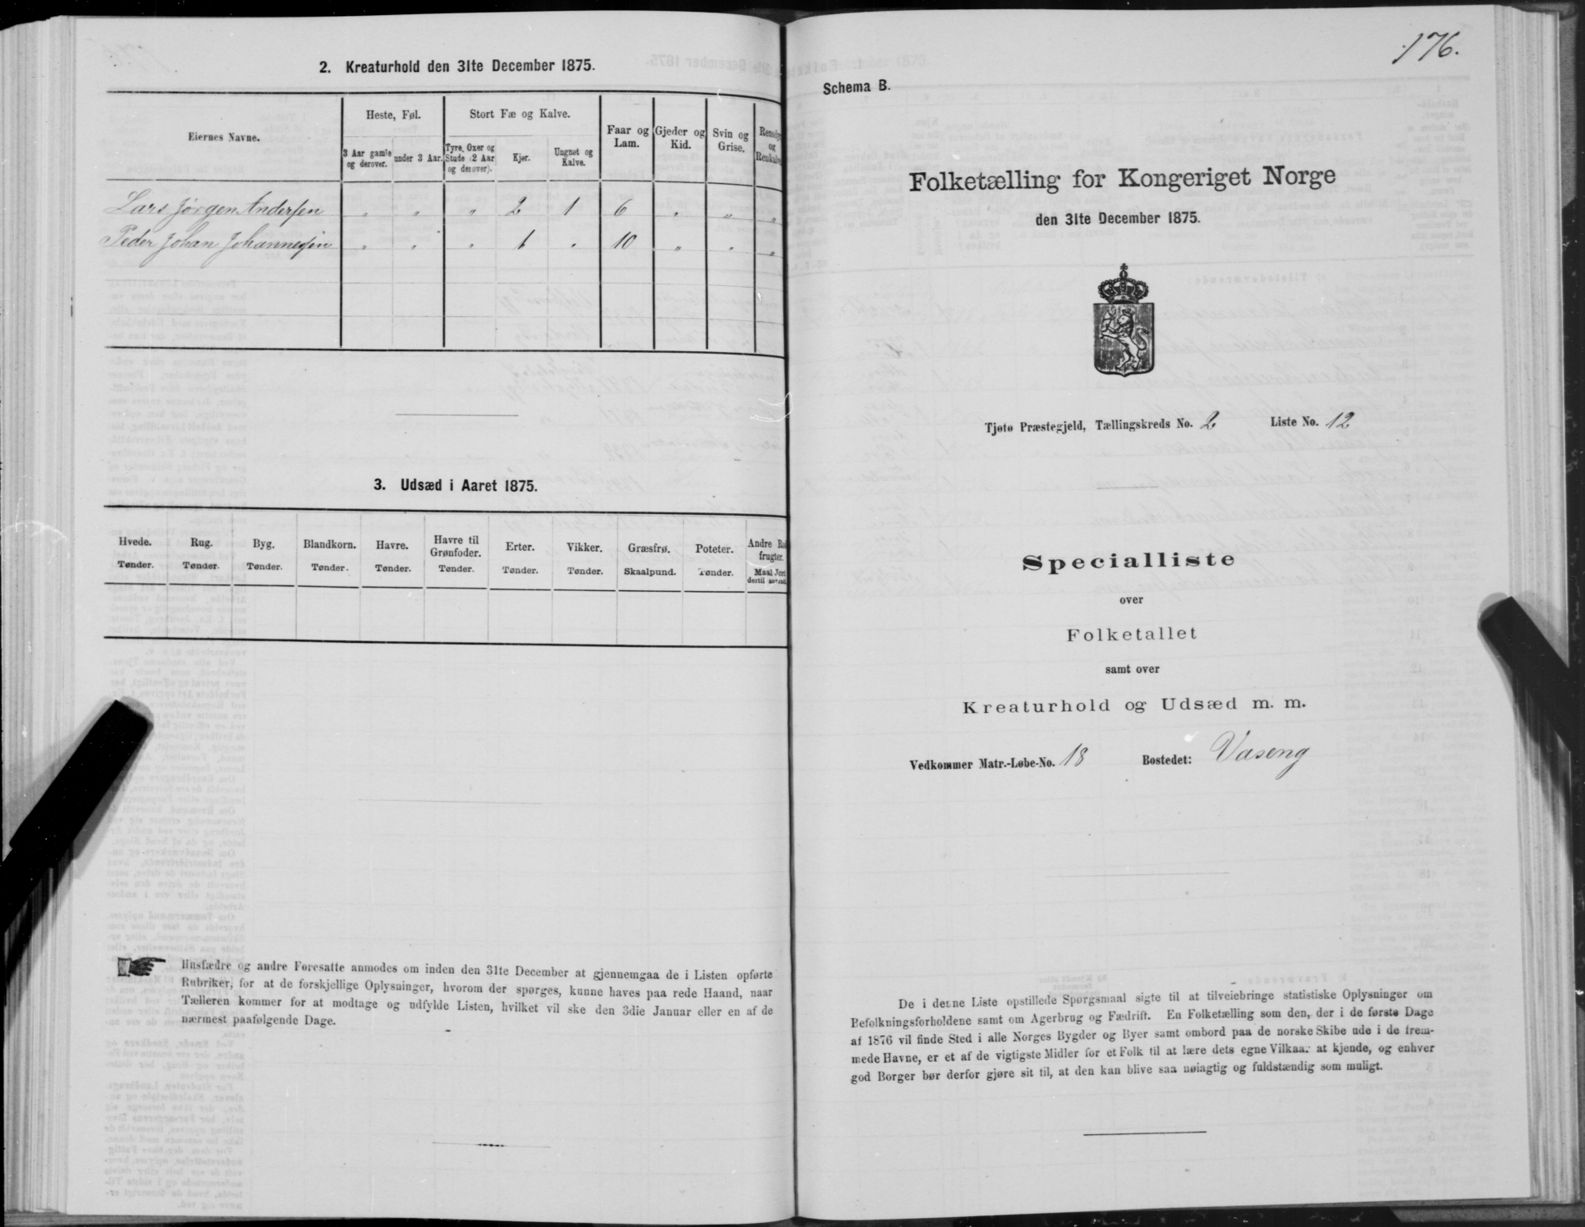 2. Kreaturhold den 31te December 1875.
Eiernes Navne.
Heste, Føl.
Stort Fæ og Kalve.
Faar og Lam.
Gjeder og Kid.
Svin og Grise.
3 Aar gamle og derover.
under 3 Aar.
Tyre, Oxer og Stude (2 Aar og derover).
Kjør.
Ungnøt og Kalve.
Lars Jørgen Andersen " " " 2 1 6 " " "
Peder Johan Johannesen " " " 1 " 10 " " "
3. Udsæd i Aaret 1875.
Hvede. Rug. Byg. Blandkorn. Havre. Havre til Grønfoder. Erter. Vikker. Græsfrø. Poteter. Andre
Tønder. Tønder. Tønder. Tønder. Tønder. Tønder. Tønder. Tønder. Skaalpund. Tønder. Maal
Husfædre og andre Foresatte anmodes om inden den 31te December at gjennemgaa de i Listen opførte
Rubriker, for at de forskjellige Oplysninger, hvorom der spørges, kunne haves paa rede Haand, naar
Tælleren kommer for at modtage og udfylde Listen, hvilket vil ske den 3die Januar eller en af de
nærmest paafølgende Dage.
176.
Schema B.
Folketælling for Kongeriget Norge
den 31te December 1875.
Tjøtø Præstegjeld, Tællingskreds No. 2 Liste No. 12
Specialliste
over
Folketallet
samt over
Kreaturhold og Udsæd m. m.
Vedkommer Matr.-Løbe-No. 18 Bostedet: Vaseng
De i denne Liste opstillede Spørgsmaal sigte til at tilveiebringe statistiske Oplysninger om
Befolkningsforholdene samt om Agerbrug og Fædrift. En Folketælling som den, der i de første Dage
af 1876 vil finde Sted i alle Norges Bygder og Byer samt ombord paa de norske Skibe ude i de frem-
mede Havne, er et af de vigtigste Midler for et Folk til at lære dets egne Vilkaar at kjende, og enhver
god Borger bør derfor gjøre sit til, at den kan blive saa nøiagtig og fuldstændig som muligt.